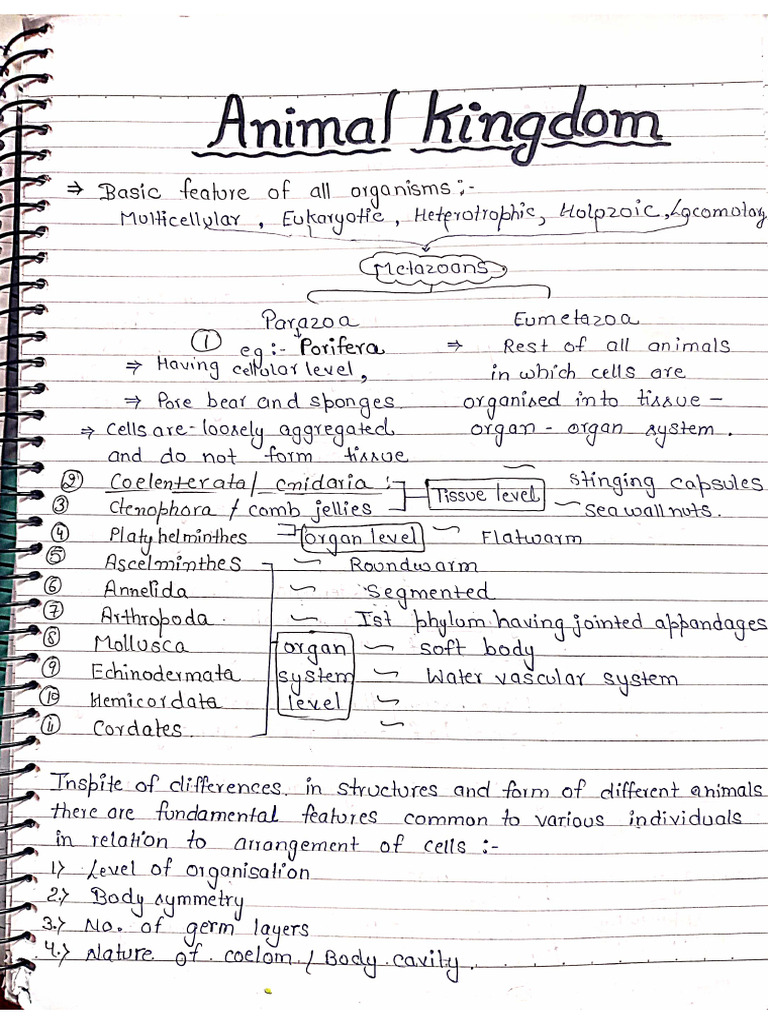 Animal Kingdom
⇒ Basic feature of all organisms :-
Multicellular, Eukaryotic, Heterotrophic, Holozoic, Locomotory
Metazoans
Parazoa Eumetazoa
① eg :- Porifera ⇒ Rest of all animals
⇒ Having cellular level, in which cells are
⇒ Pore bear and sponges organised into tissue -
⇒ Cells are - loosely aggregated organ - organ system.
and do not form tissue
② Coelenterata / cnidaria :- Tissue level ~ Stinging capsules
③ Ctenophora / comb jellies ~ Sea wall nuts.
④ Platyhelminthes organ level ~ Flatwarm
⑤ Ascelminthes ~ Roundwarm
⑥ Annelida ~ Segmented
⑦ Arthropoda. ~ Ist phylum having jointed appandages
⑧ Mollusca organ ~ soft body
⑨ Echinodermata system ~ Water vascular system
⑩ Hemicordata level ~
⑪ Cordates. ~
Inspite of differences. in structures and form of different animals
there are fundamental features common to various individuals
in relation to arrangement of cells :-
1) Level of organisation
2.) Body symmetry
3.) No. of germ layers
4.) Nature of coelom / Body cavity.